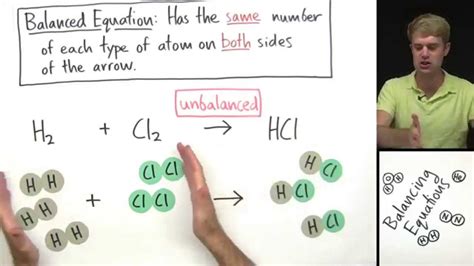 Balanced Equation: Has the same number
of each type of atom on both sides
of the arrow.
unbalanced
H2 + Cl2 → HCl
H H
H H
H H
+
Cl Cl
Cl Cl
→
H Cl
H Cl
H Cl
Balancing
Equations
H O H
H H
N N